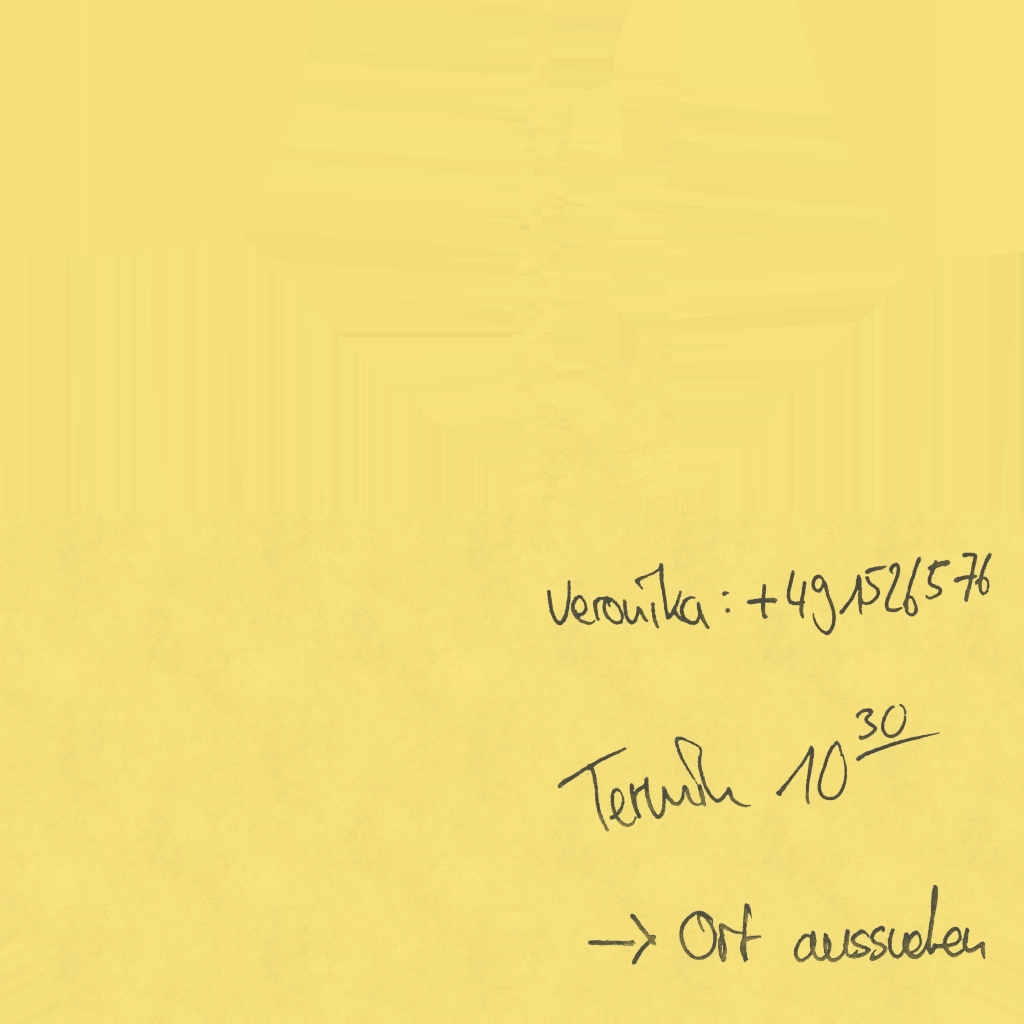 Veronika: +491526576
Termin 10³⁰
→ Ort aussuchen